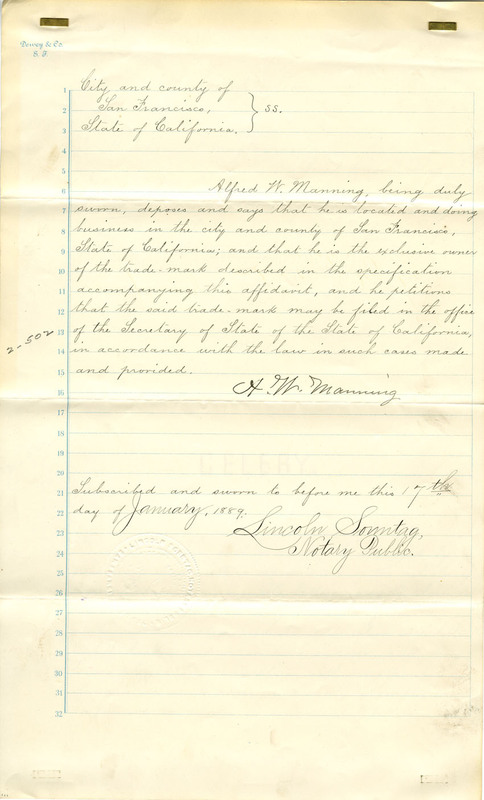 Dewey & Co.
S. F.
1 City, and county of
2 San Francisco, } ss.
3 State of California.
4
5
6 Alfred W. Manning, being duly
7 sworn, deposes and says that he is located and doing
8 business in the city and county of San Francisco,
9 State of California; and that he is the exclusive owner
10 of the trade-mark described in the specification
11 accompanying this affidavit, and he petitions
12 that the said trade-mark may be filed in the office
13 of the Secretary of State of the State of California,
14 in accordance with the law in such cases made
15 and provided.
16 A. W. Manning
2-502
17
18
19
20
21 Subscribed and sworn to before me this 17th
22 day of January, 1889.
23 Lincoln Sonntag,
24 Notary Public.
25
26
27
28
29
30
31
32